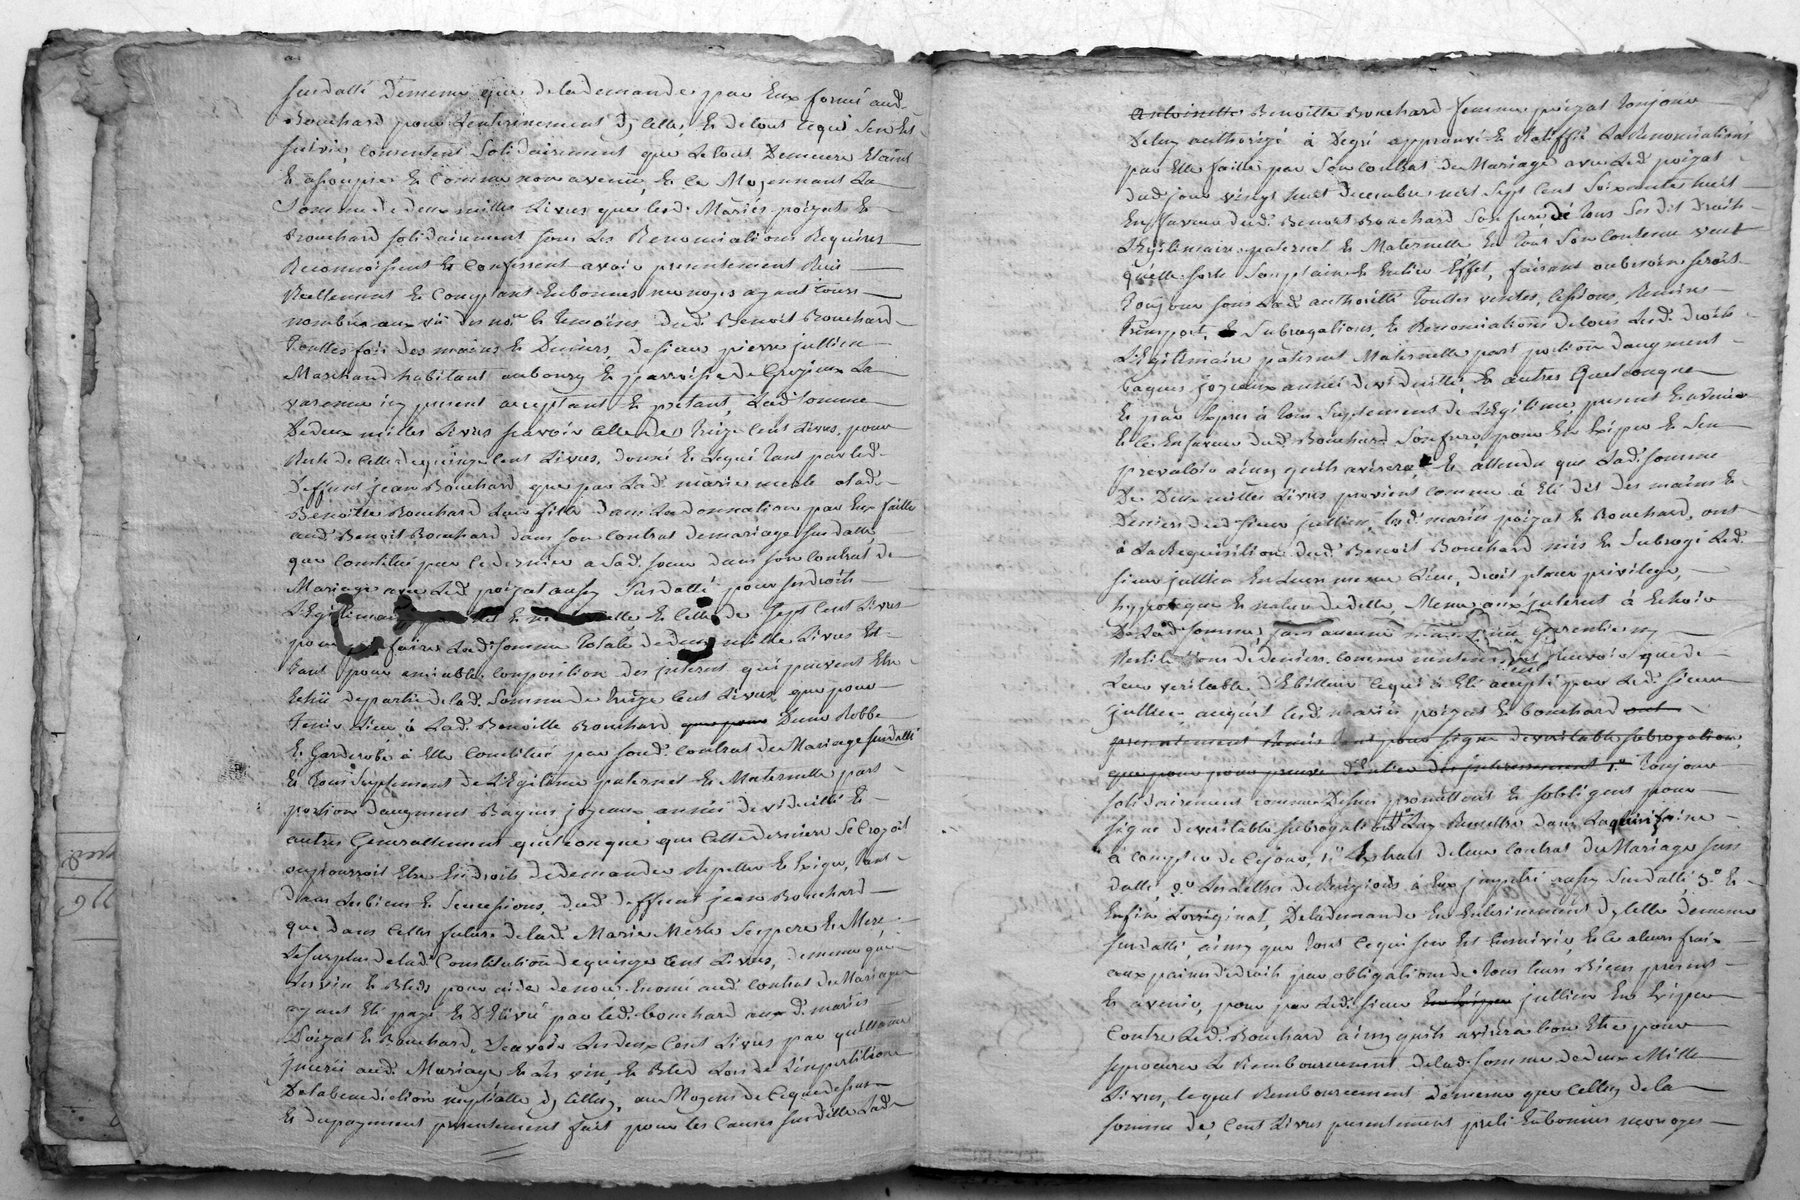 surdatté Dememe que delademande par Eux formé aud.
Bouchard pour Lenterinement dy celles, Et detout cequi sen Est
suivie, consentent solidairement que Letout Demeure Etaint
Et asoupie Et comme non avenüe, Et ce Moyennant La
somme de deux milles Livres que lesd. Mariés poizat Et
Bouchard solidairement sous Les Renonciations Requises
Reconnoissent Et Confessent avoir presentement Reçu
Reellement Et Comptant Enbonnes monoyes ayant cours
nombrée aux vü des no.re Et temoins dud. Benoit Bouchard
touttes fois des mains Et Deniers, desieur pierre jullien
Marchand habitant aubourg Et parroisse de Grezieux La
varenne icy present acceptant Et pretant, Lad. somme
Dedeux milles Livres scavoir celle de treize Cent Livres, pour
Reste de Celle dequinze Cent Livres, donné Et Legué tant par led.
Deffunt jean Bouchard que par Lad. marie merle alad.
Benoitte Bouchard Leur fille dans La donnation par Eux faitte
aud. Benoit Bouchard dans son contrat demariage surdatté
que Constitué par ce dernier a Sad. soeur dans son contrat de
Mariage avec Led. poizat aussy surdatté pour sesdroits
Légitimaires Et Et celle de sept Cent Livres
pour faire Lad. somme totale dedeux mille Livres Est
tant pour amiable composition des jnterest qui peuvent Etre
Echü departie delad. Somme de treize Cent Livres que pour
tenir Lieu à Lad. Benoitte Bouchard que pour Dune Robbe
Et Garderobe à Elle Constitué par sond. contrat de Mariage surdatté
Et tous suplement de Légitime paternel Et Maternelle part
portion daugment Bagues joyeaux année deviduitté Et
autres Generallement quelconque que Cette derniere Se Croyoit
oupourroit Etre Endroits dedemander Repetter Et Exiger, tant
dans Lesbiens Et Successions, dud. deffunt jean Bouchard
que dans Celles future delad. Marie Merle Sespere Et Mere,
Lesurplus delad. Constitution dequinze Cent Livres, dememe que
Les vin Et Bled, pour aide denoce Enoncé aud. contrat de Mariage
ayant Eté payé Et Délivré par led. bouchard aux d. mariés
Poizat Et Bouchard, Scavoir Lesdeux Cent Livres par quittance
jnserée aud. Mariage Et Les vin, Et Bled Lors de Limpartition
Delabenediction nuptialle dy Celluy, au Moyens de Cequedessus
Et dupayment presentement fait pour les Causes surditte Lad.
Antoinette Benoitte Bouchard femme poizat toujour
Deluy authorizé à Degré approuvé Et Ratiffié La Renonciations
par Elle faitte par Son contrat de Mariage avec Led. poizat
dud. jour vingt huit Decembre mil Sept Cent Soixante huit
En faveur dud. Benoit Bouchard Son frere de tous Ses dit droits
Légitimaire paternel Et Maternelle En tous Son Contenu veut
quelle sorte Son plain Et Entier Effet, faisant aubesoin seroit
toujour sous Lad. authoritté touttes ventes, Cessions, Remises
transport, Et Subrogations, Et Renonciations detous Lesd. droits
Légitimaire paternel Maternelle part portion daugment
bagues joyeaux année deviduitté, Et autres Quelconque
Et par Exprès à tous Suplement de Légitime, present Et avenir
Et ce En faveur dud. Bouchard Son frere pour En Exiper Et Sen
prevaloir ainsy quils avisera, Et attendu que Lad. somme
De Deux milles Livres provient comme à Eté dit des mains Et
Deniers dud. sieur jullien, lesd. mariés poizat Et Bouchard, ont
à La Requisition dud. Benoit Bouchard mis Et Subrogé Led.
sieur jullien En Leurs meme Lieu, droit place privilege,
hypoteque Et nature dedette, Meme aux jnterest à Echoir
De Lad. somme, sans aucune Garentie ny
Restitutions dedeniers, comme
Leur veritable Débitteur Cequi à Eté accepté par Led. sieur
jullien auquel lesd. mariés poizat Et bouchard ont
presentement Remis pour signe deveritable subrogation,
que pour pour preuve toujour
solidairement comme Dessus promettent Et sobligent pour
signe deveritable subrogations de Luy Remettre dans Laquinzaine
à compter de Cejour, 1.º Extrait deleur contrat de Mariage sur
datté 2.º Les Lettres de à Eux aussy surdatté, 3.º Et
Enfin Lorriginal, Deladamande En Enterinement dy Celle dememe
surdatté, ainsy que tout Cequi sen Est Ensuivie, Et Ce aleurs frais
aux peines dedroits par obligations de tous leurs Biens present
Et avenir, pour par Led. Sieur En Exiper jullien En Exiper
contre Led. Bouchard ainsy quils avisera bon Etre pour
seprocurer Le Remboursement delad. somme dedeux Mille
Livres, lequel Remboursement dememe que Celluy dela
somme de, Cent Livres presentement preté Enbonnes monoyes